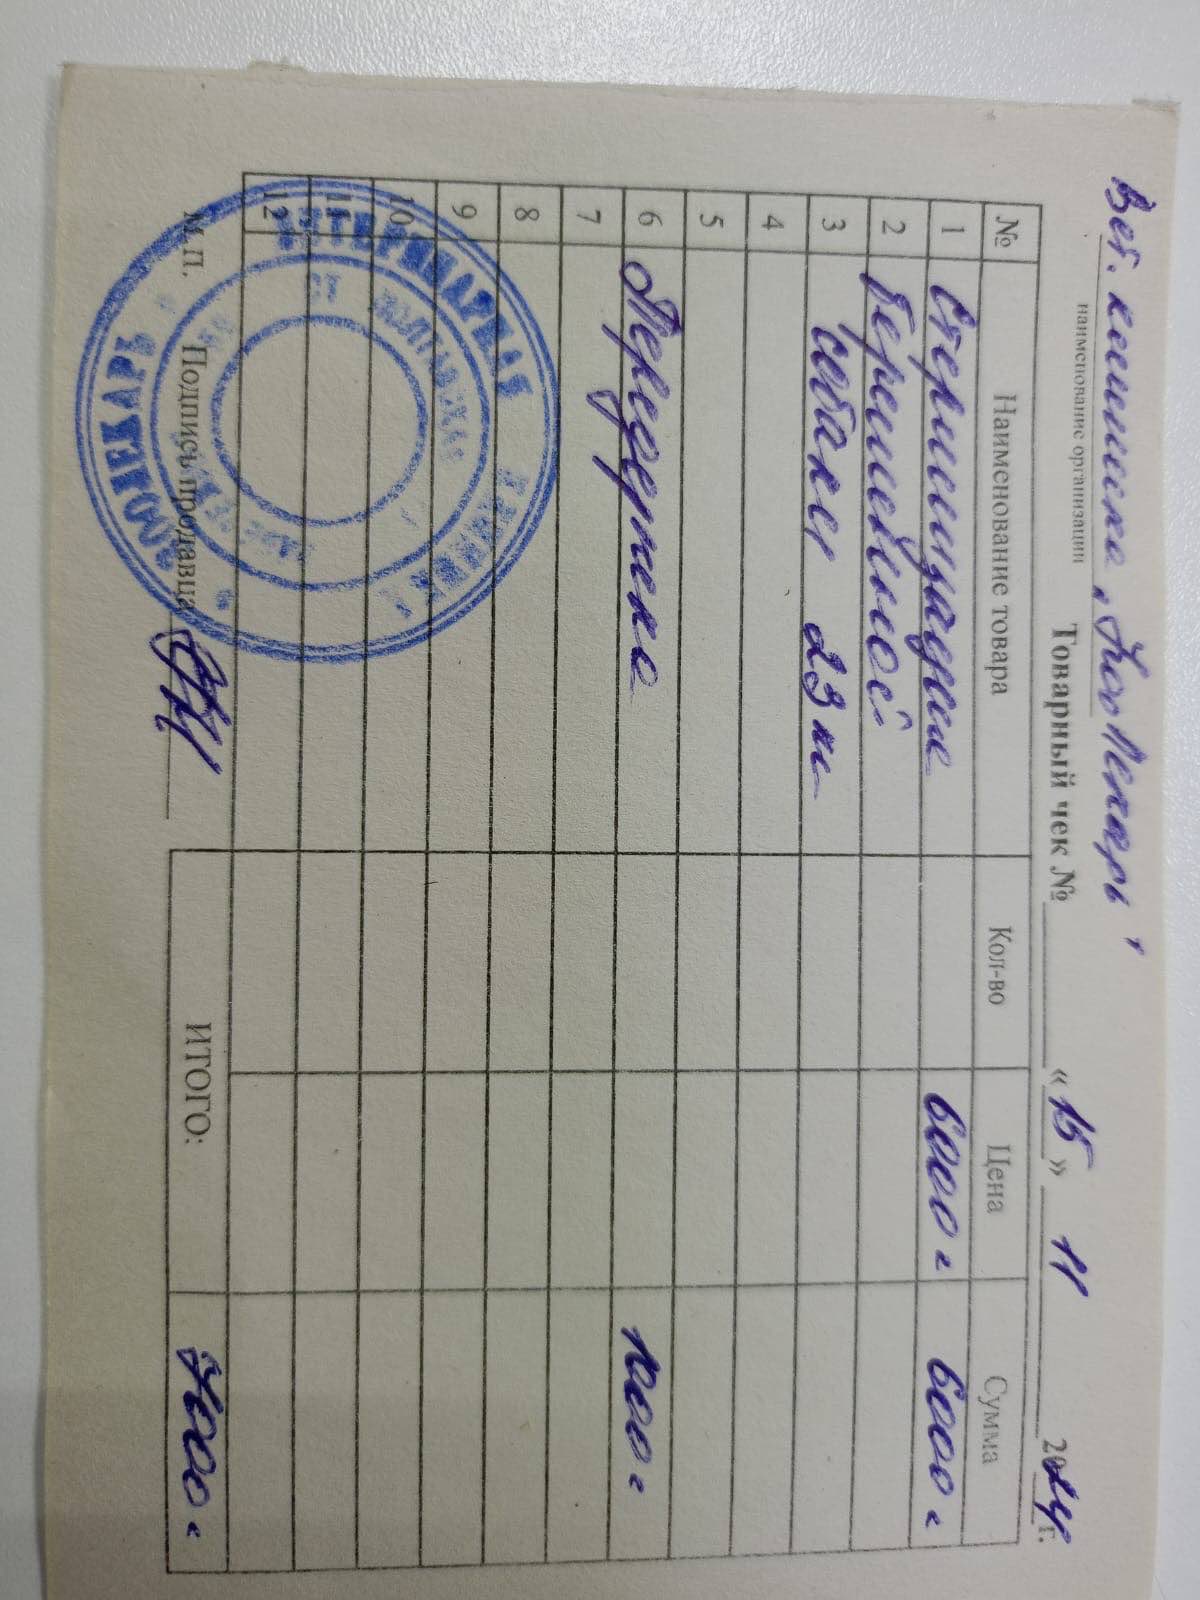 Вет. клиника „Зоо Лекарь"
наименование организации
Товарный чек № «15» 11 2024г.
№ Наименование товара Кол-во Цена Сумма
1 Стерилизация 6000 = 6000 =
2 беременной
3 собаки 23 кг
4
5
6 Передержка 1000 =
7
8
9
10
11
12
ИТОГО: 7000 =
М.П. Подпись продавца
ВЕТЕРИНАРНАЯ КЛИНИКА
ЗООЛЕКАРЬ